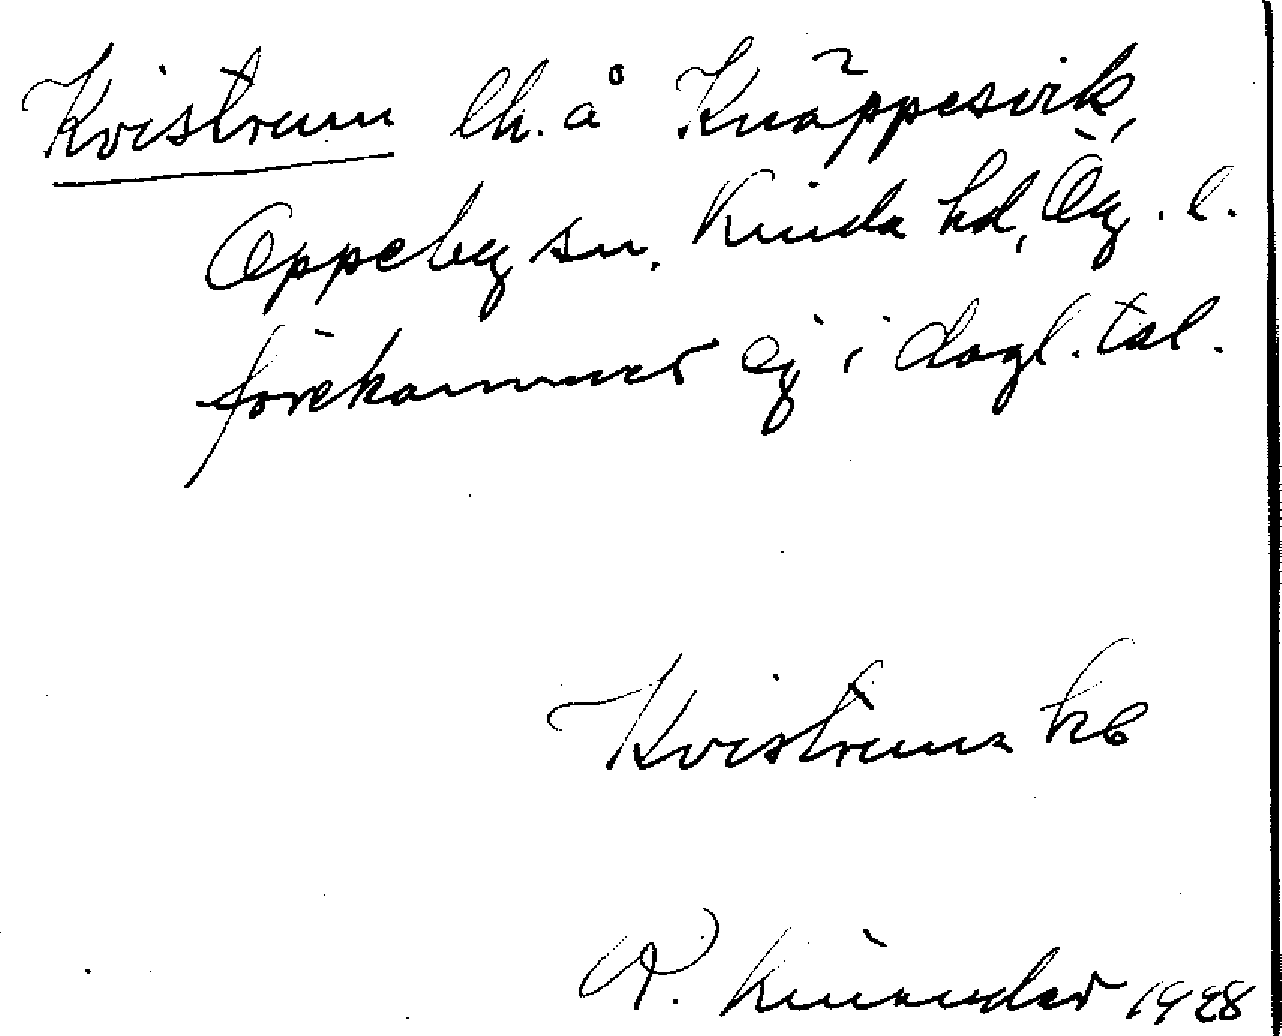 Kvistrum lh. å Knäppesvik,
Oppeby sn. Kinda hd, Ög. l.
förekommer ej i dagl. tal.
Kvistrum
R. Kinander 1928